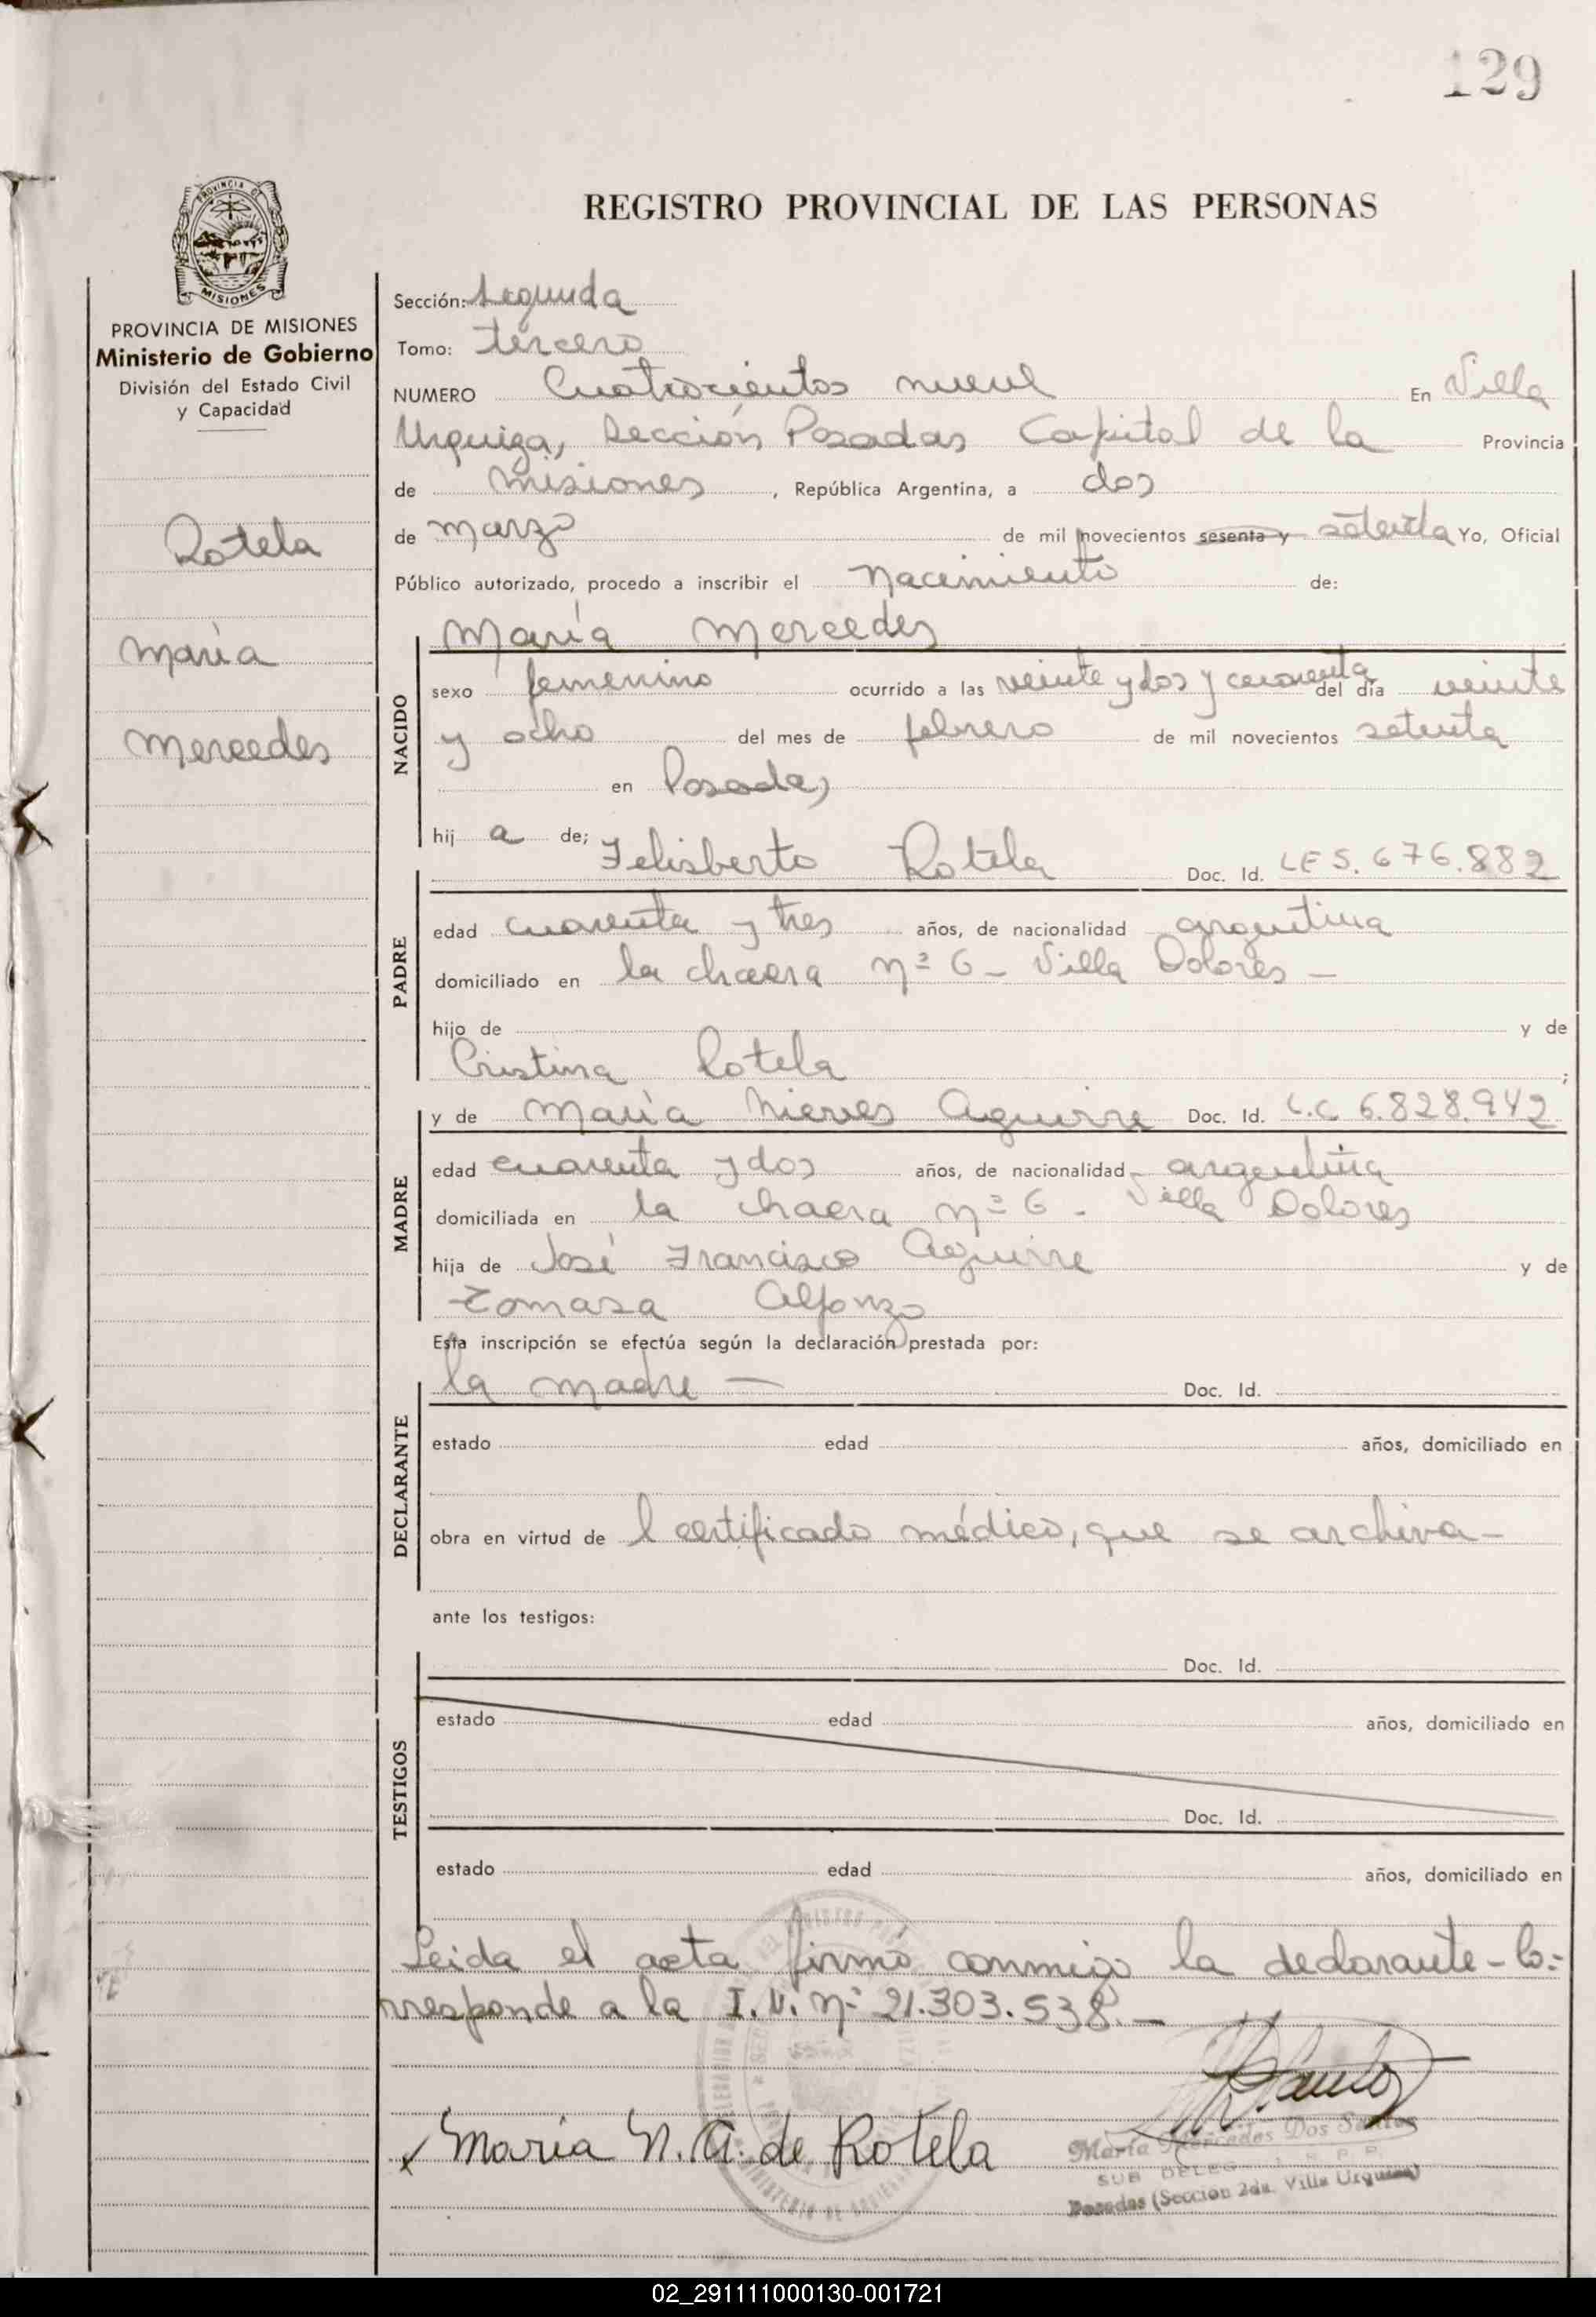 129
PROVINCIA DE
MISIONES
REGISTRO PROVINCIAL DE LAS PERSONAS
PROVINCIA DE MISIONES
Ministerio de Gobierno
División del Estado Civil
y Capacidad
Rotela
María
Mercedes
Sección: Segunda
Tomo: tercero
NUMERO Cuatrocientos nueve En Villa
Urquiza, Sección Posadas Capital de la Provincia
de Misiones, República Argentina, a dos
de marzo de mil novecientos sesenta y setenta Yo, Oficial
Público autorizado, procedo a inscribir el Nacimiento de:
NACIDO
María Mercedes
sexo femenino ocurrido a las veinte y dos y cuarenta del día veinte
y ocho del mes de febrero de mil novecientos setenta
en Posadas
hij a de;
PADRE
Felisberto Rotela Doc. Id. LE 5.676.882
edad cuarenta y tres años, de nacionalidad argentina
domiciliado en la chacra nº 6 - Villa Dolores -
hijo de y de
Cristina Rotela ;
MADRE
y de María Nieves Aguirre Doc. Id. L.C 6.828.942
edad cuarenta y dos años, de nacionalidad argentina
domiciliada en la chacra nº 6 - Villa Dolores
hija de José Francisco Aguirre y de
Tomasa Alfonzo
Esta inscripción se efectúa según la declaración prestada por:
DECLARANTE
la madre - Doc. Id.
estado edad años, domiciliado en
obra en virtud de l certificado médico, que se archiva -
ante los testigos:
TESTIGOS
Doc. Id.
estado edad años, domiciliado en
Doc. Id.
estado edad años, domiciliado en
Leida el acta firmó conmigo la declarante - Co=
rresponde a la I.N. nº 21.303.538. -
María N. A. de Rotela
María Mercedes Dos Santos
SUB DELEG
Posadas (Sección 2da. Villa Urquiza)
02_291111000130-001721